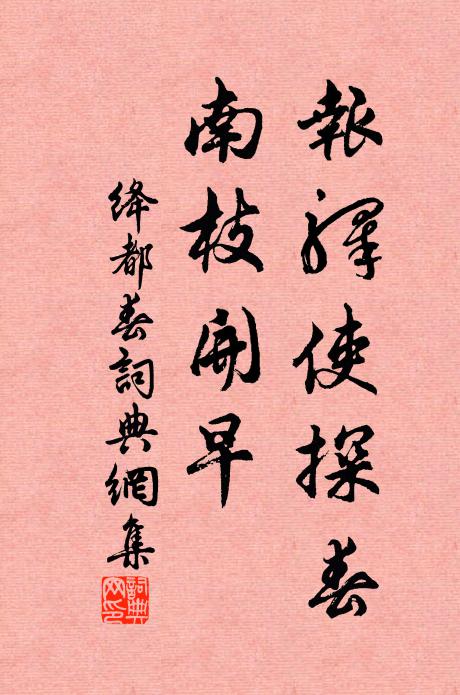 報驛使探春
南枝開早
绛都春詞典網集
詞典网印